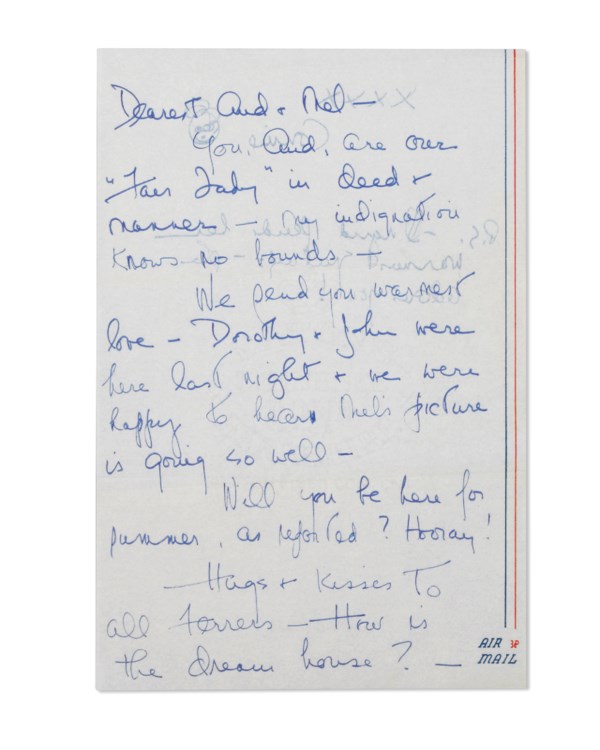 Dearest Aud & Mel –
You, Aud, are our
"Fair Lady" in deed &
manner – my indignation
knows no bounds –
We send you warmest
love – Dorothy & John were
here last night & we were
happy to hear Mel's picture
is going so well –
Will you be here for
summer, as reported? Hooray!
– Hugs & Kisses To
all Ferrers – How is
the dream house? –
AIR
MAIL